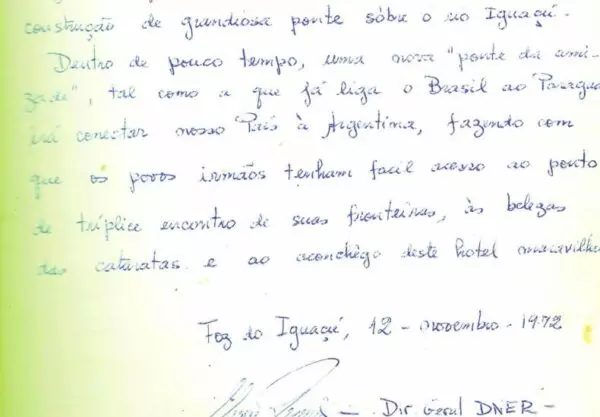 construção de grandiosa ponte sôbre o rio Iguaçú.
Dentro de pouco tempo, uma nova "ponte da ami-
zade", tal como a que já liga o Brasil ao Paragua
irá conectar nosso País à Argentina, fazendo com
que os povos irmãos tenham facil acesso ao ponto
de tríplice encontro de suas fronteiras, às belezas
das cataratas e ao aconchêgo deste hotel maravilho
Foz do Iguaçú, 12 - novembro - 1972
— Dir. Geral DNER -